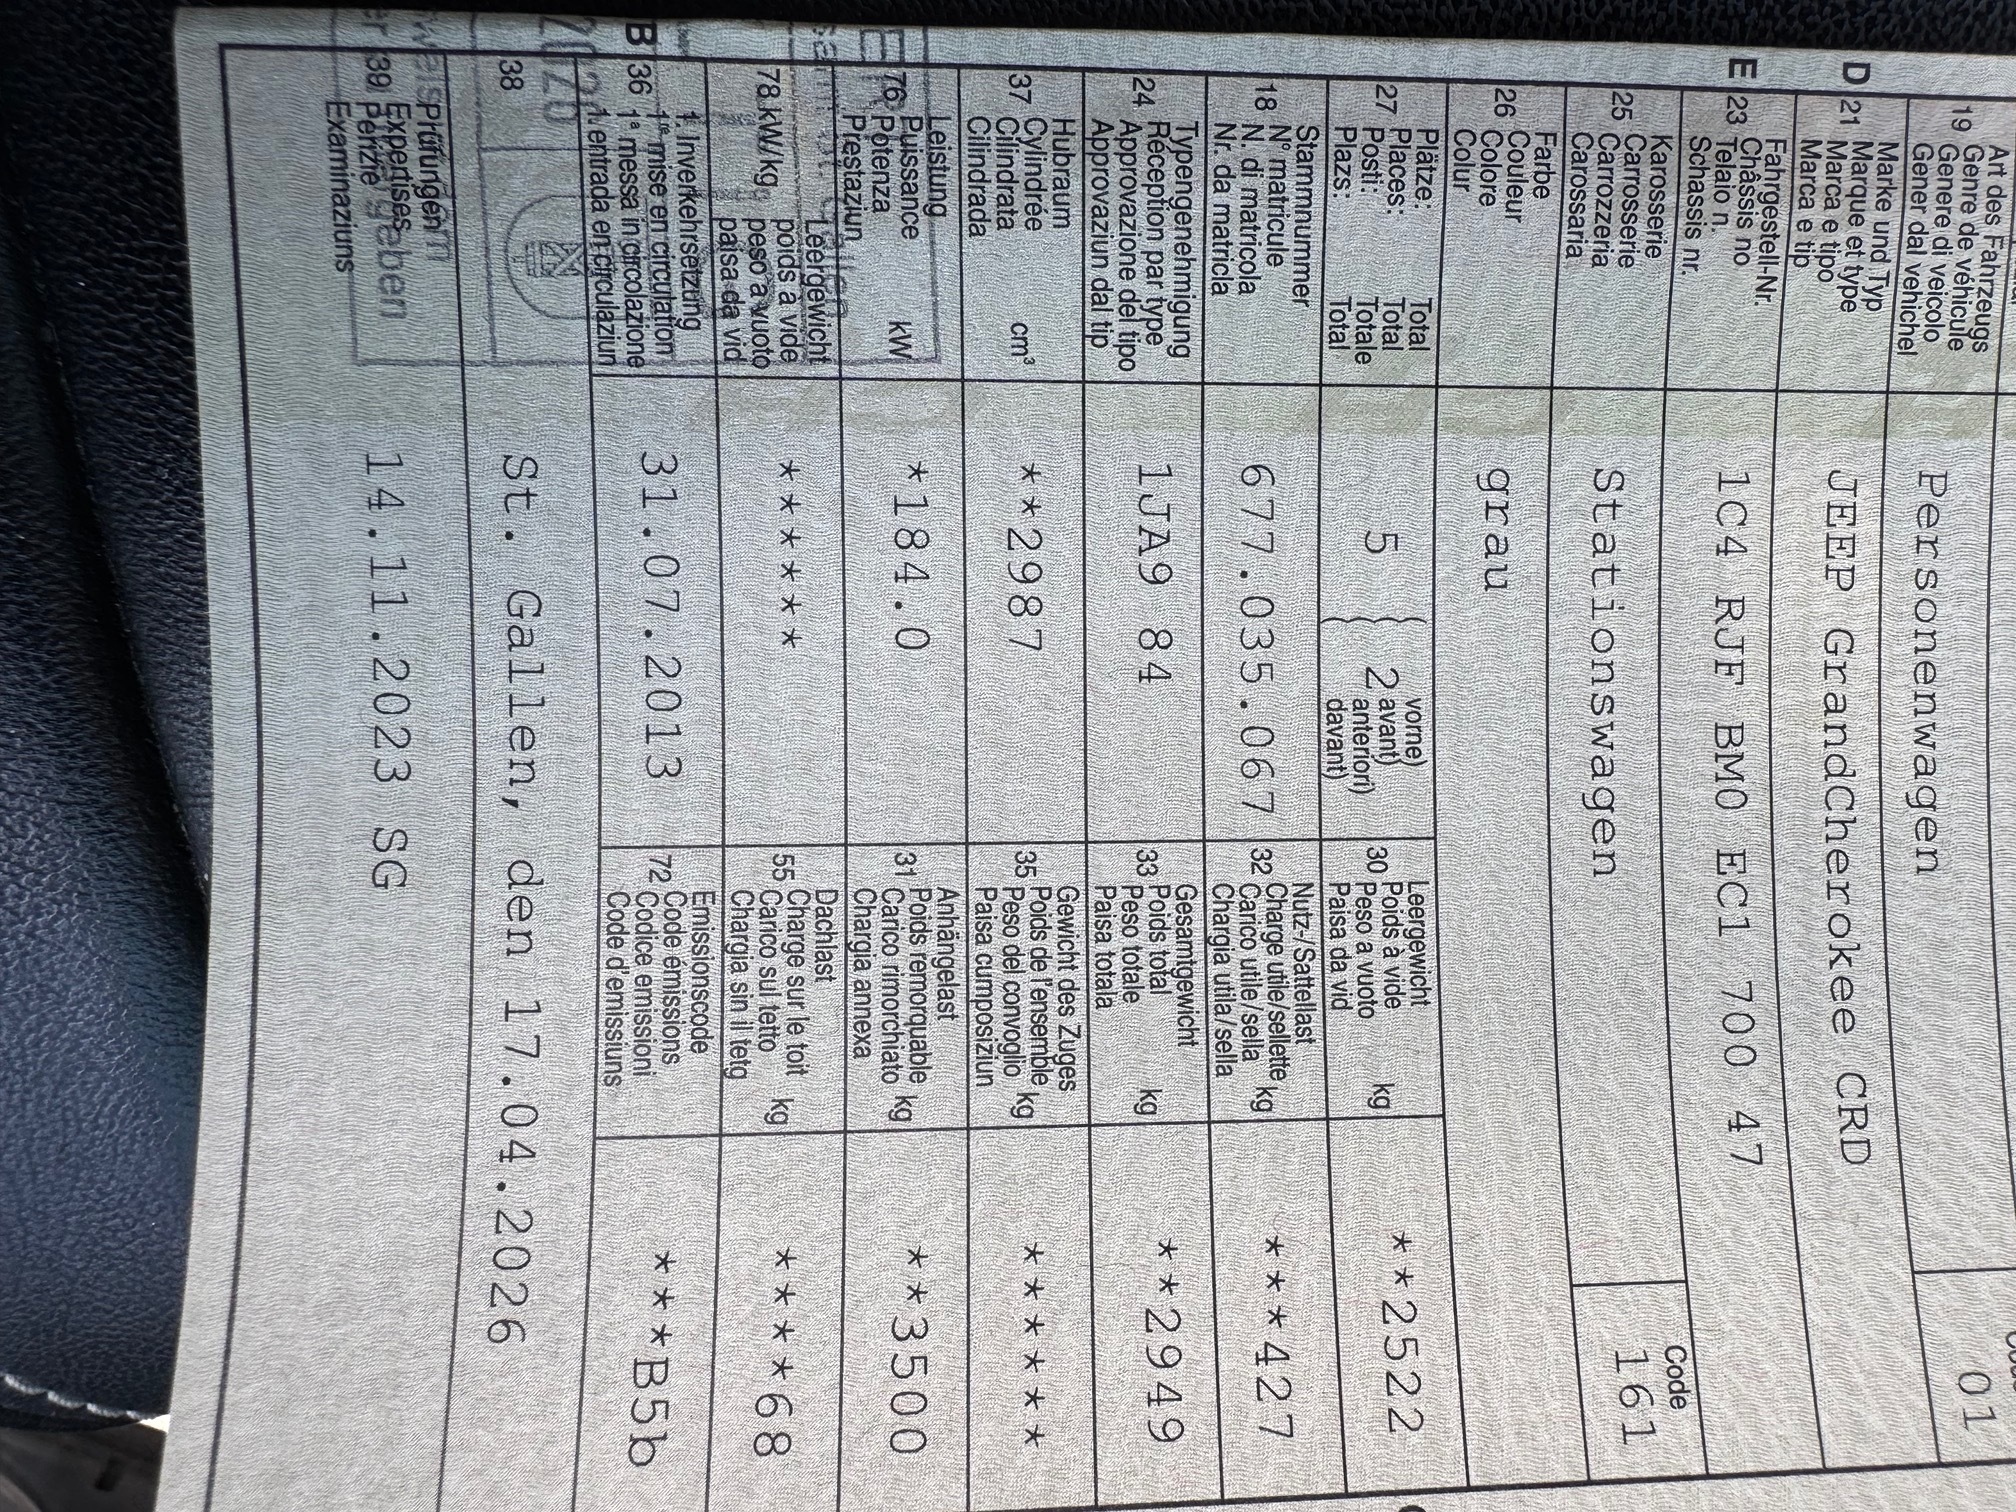 Art des Fahrzeugs
19 Genre de véhicule
Genere di veicolo
Gener dal vehichel
Personenwagen
01
Marke und Typ
D 21 Marque et type
Marca e tipo
Marca e tip
JEEP GrandCherokee CRD
Fahrgestell-Nr.
E 23 Châssis no
Telaio n.
Schassis nr.
1C4 RJF BM0 EC1 700 47
Karosserie
25 Carrosserie
Carrozzeria
Carossaria
Stationswagen
Code
161
Farbe
26 Couleur
Colore
Colur
grau
27 Plätze: Total
Places: Total
Posti: Totale
Plazs: Total
5
2
vorne)
avant)
anteriori)
davant)
Leergewicht
30 Poids à vide
Peso a vuoto kg
Paisa da vid
**2522
Stammnummer
18 N° matricule
N. di matricola
Nr. da matricla
677.035.067
Nutz-/Sattellast
32 Charge utile/sellette
Carico utile/sella kg
Chargia utila/sella
***427
Typengenehmigung
24 Réception par type
Approvazione del tipo
Approvaziun dal tip
1JA9 84
Gesamtgewicht
33 Poids total
Peso totale kg
Paisa totala
**2949
Hubraum
37 Cylindrée
Cilindrata cm³
Cilindrada
**2987
Gewicht des Zuges
35 Poids de l'ensemble
Peso del convoglio kg
Paisa cumposiziun
******
Leistung
76 Puissance
Potenza kW
Prestaziun
*184.0
Anhängelast
31 Poids remorquable
Carico rimorchiato kg
Chargia annexa
**3500
78 kW/kg
Leergewicht
poids à vide
peso a vuoto
paisa da vid
******
Dachlast
55 Charge sur le toit
Carico sul tetto kg
Chargia sin il tetg
****68
1. Inverkehrsetzung
B 36 1re mise en circulation
1a messa in circolazione
1. entrada en circulaziun
31.07.2013
Emissionscode
72 Code émissions
Codice emissioni
Code d'emissiuns
***B5b
38
St. Gallen, den 17.04.2026
Prüfungen
39 Expertises
Perizie
Examinaziuns
14.11.2023 SG